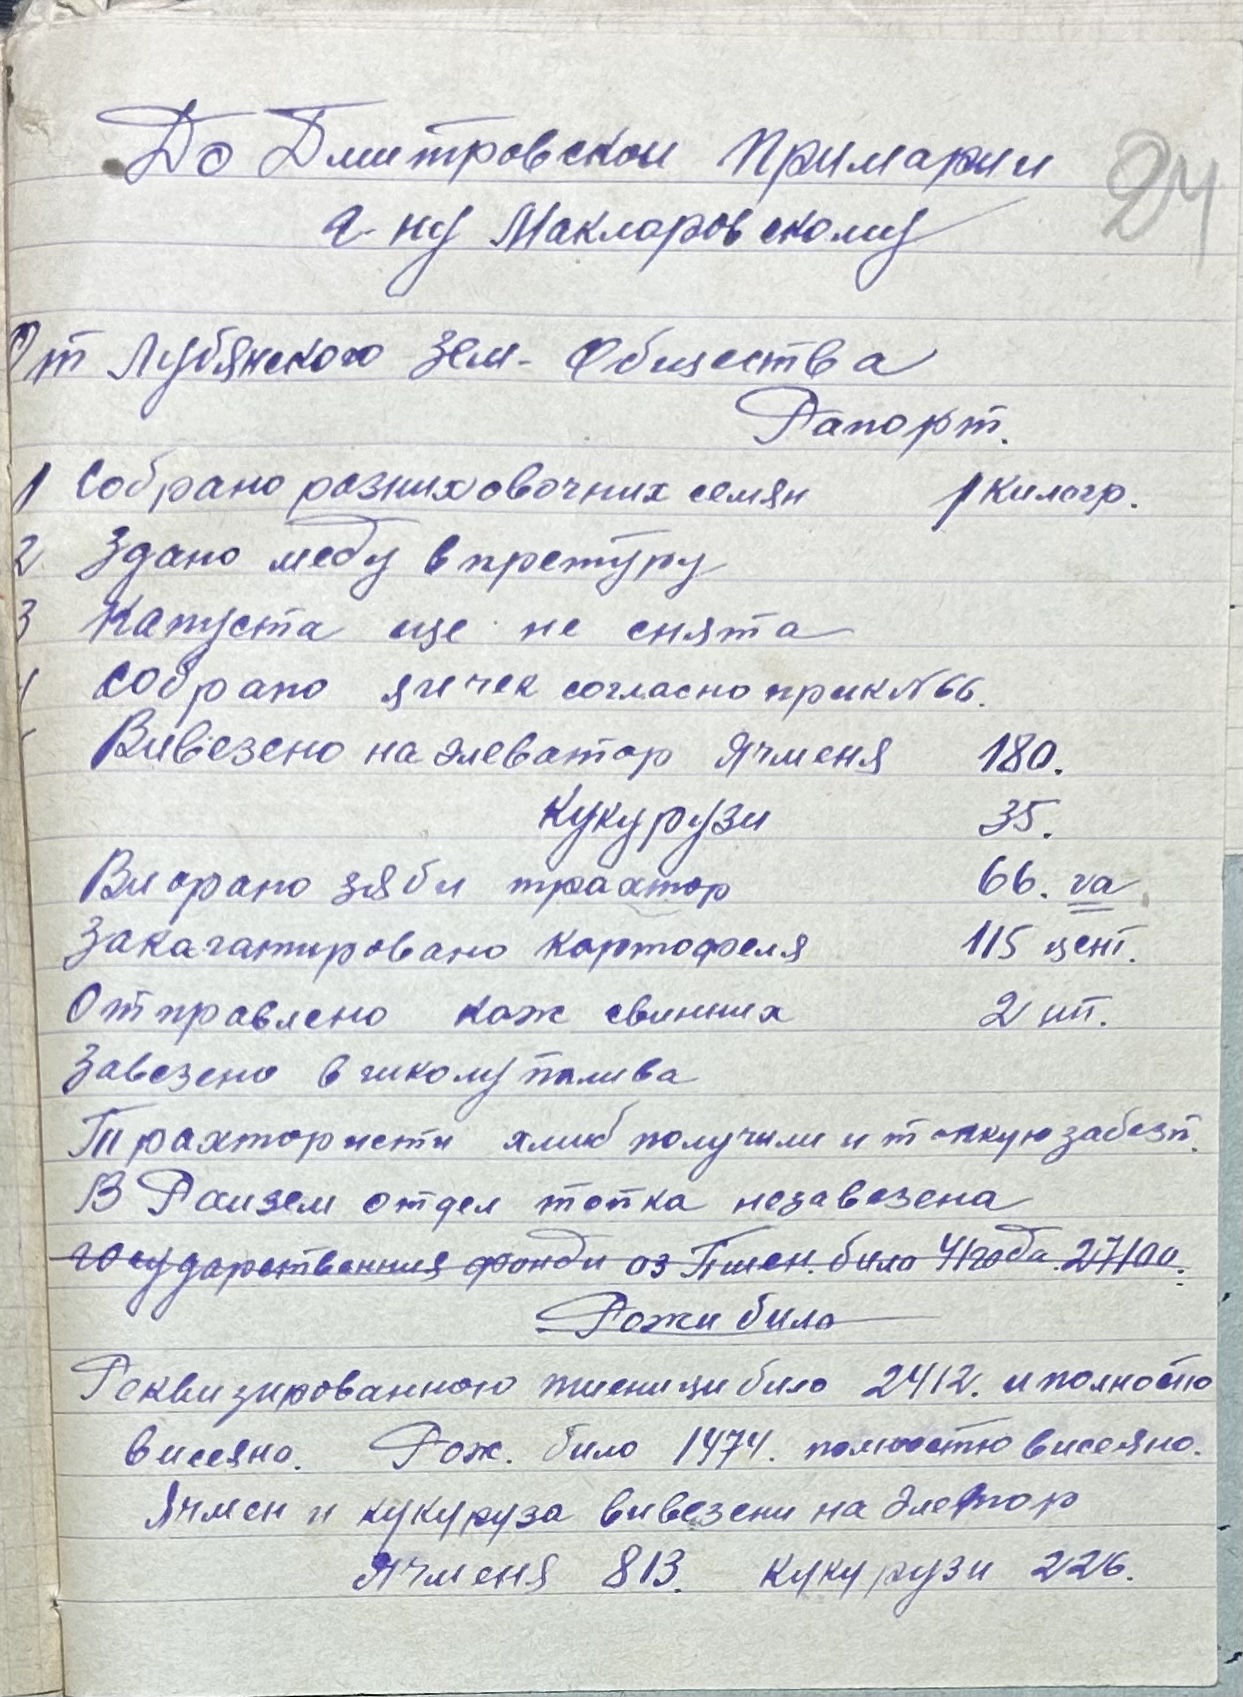 До Дмитровскои Примарии
24
г-ну Макларовскому
От Лубянского Зем-Общества
Рапорт.
1 Собрано разних овочних семян 1 Килогр.
2 Здано меду в претуру
3 Капуста ище не снята
4 Собрано яичек согласно прик N66.
Вивезено на элеватор Ячменя 180.
Кукурузи 35.
Виорано зяби трахтор 66. га
Закагатировано картофеля 115 цент.
Отправлено кож свинних 2 шт.
Завезено в школу палива
Трахтористи хлиб получили и топкую забезп.
В Раизем отдел топка незавезена
государственния фонди оз Пшен. било 41 года. 27100.
Рожи било
Реквизированною пшеници било 2412. и полностю
висеяно. Рож. било 1474. полностю висеяно.
Ячмен и кукуруза вивезени на Элеватор
Ячменя 813. кукурузи 226.